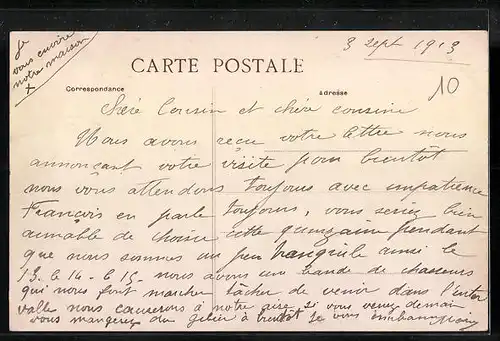 Je
vous envoie
notre maison
+
3 sept 1913
CARTE POSTALE
Correspondance
Adresse
10
Chere Cousin et chère cousine
Nous avons reçu votre lettre nous
annoncant votre visite pour bientôt
nous vous attendons toujours avec impatience
François en parle toujours, vous seriez bien
aimable de choisir cette quinzaine pendant
que nous sommes un peu tranquile ainsi le
13. le 14 - le 15 - nous avons une bande de chasseurs
qui nous font marcher tâcher de venir dans l'inter
valle nous causerons à notre aise si vous venez demain
vous mangerez du gibier à bientôt Je vous